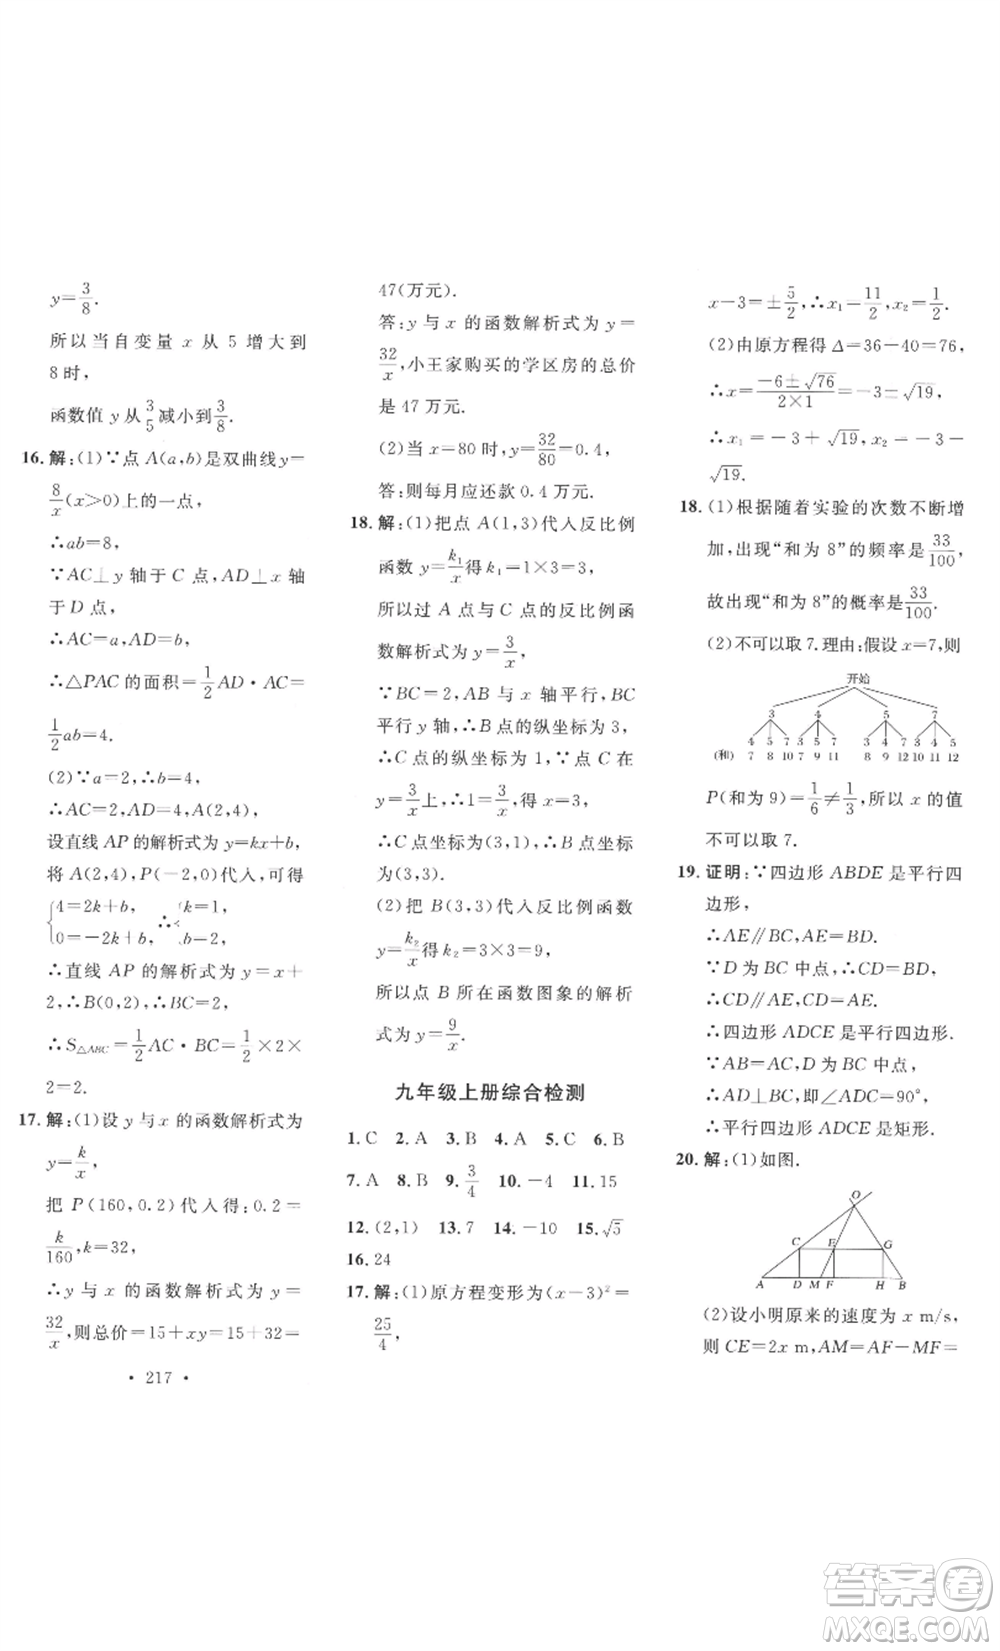 y=3/8.
所以当自变量 x 从 5 增大到
8 时,
函数值 y 从3/5减小到3/8.
16.解:(1)∵点 A(a,b)是双曲线y=
8/x(x>0)上的一点,
∴ab=8,
∵AC⊥y 轴于 C 点,AD⊥x 轴
于 D 点,
∴AC=a,AD=b,
∴△PAC 的面积=1/2AD·AC=
1/2ab=4.
(2)∵a=2,∴b=4,
∴AC=2,AD=4,A(2,4),
设直线 AP 的解析式为 y=kx+b,
将 A(2,4),P(-2,0)代入,可得
{4=2k+b,
0=-2k+b, ∴
∴直线 AP 的解析式为 y=x+
2,∴B(0,2),∴BC=2,
∴S△ABC=1/2AC·BC=1/2×2×
2=2.
17.解:(1)设 y 与x 的函数解析式为
y=k/x,
把 P(160,0.2)代入得:0.2=
k/160,k=32,
∴y 与 x 的函数解析式为 y=
32/x,则总价=15+xy=15+32=
• 217 •
47(万元).
答:y 与 x 的函数解析式为 y=
32/x,小王家购买的学区房的总价
是 47 万元.
(2)当 x=80 时,y=32/80=0.4,
答:则每月应还款 0.4 万元.
18.解:(1)把点 A(1,3)代入反比例
函数 y=k₁/x得 k₁=1×3=3,
所以过 A 点与 C 点的反比例函
数解析式为 y=3/x,
∵BC=2,AB 与 x 轴平行,BC
平行 y 轴,∴B 点的纵坐标为 3,
∴C 点的纵坐标为 1,∵C 点在
y=3/x上,∴1=3/x得:x=3,
∴C 点坐标为(3,1),∴B 点坐标为
(3,3).
(2)把 B(3,3)代入反比例函数
y=k₂/x得 k₂=3×3=9,
所以点 B 所在函数图象的解析
式为 y=9/x.
九年级上册综合检测
1.C 2.A 3.B 4.A 5.C 6.B
7.A 8.B 9.3/4 10.-4 11.15
12.(2,1) 13.7 14.-10 15.√5
16.24
17.解:(1)原方程变形为(x-3)²=
25/4,
x-3=±5/2,∴x₁=11/2,x₂=1/2.
(2)由原方程得 Δ=36-40=76,
∴x=(-6±√76)/(2×1)=-3±√19,
∴x₁=-3+√19,x₂=-3-
√19.
18.(1)根据随着实验的次数不断增
加,出现“和为 8”的频率是33/100,
故出现“和为 8”的概率是33/100.
(2)不可以取 7.理由:假设 x=7,则
开始
3 4 5 7
4 5 7 3 5 7 3 4 7 3 4 5
(和) 7 8 10 7 9 11 8 9 12 10 11 12
P(和为 9)=1/6≠1/3,所以 x 的值
不可以取 7.
19.证明:∵四边形 ABDE 是平行四
边形,
∴AE∥BC,AE=BD.
∵D 为 BC 中点,∴CD=BD,
∴CD∥AE,CD=AE.
∴四边形 ADCE 是平行四边形.
∵AB=AC,D 为 BC 中点,
∴AD⊥BC,即∠ADC=90°,
∴平行四边形 ADCE 是矩形.
20.解:(1)如图.
O
C E G
A D M F H B
(2)设小明原来的速度为 x m/s,
则 CE=2x m,AM=AF-MF=
答案卷
MXQE.COM